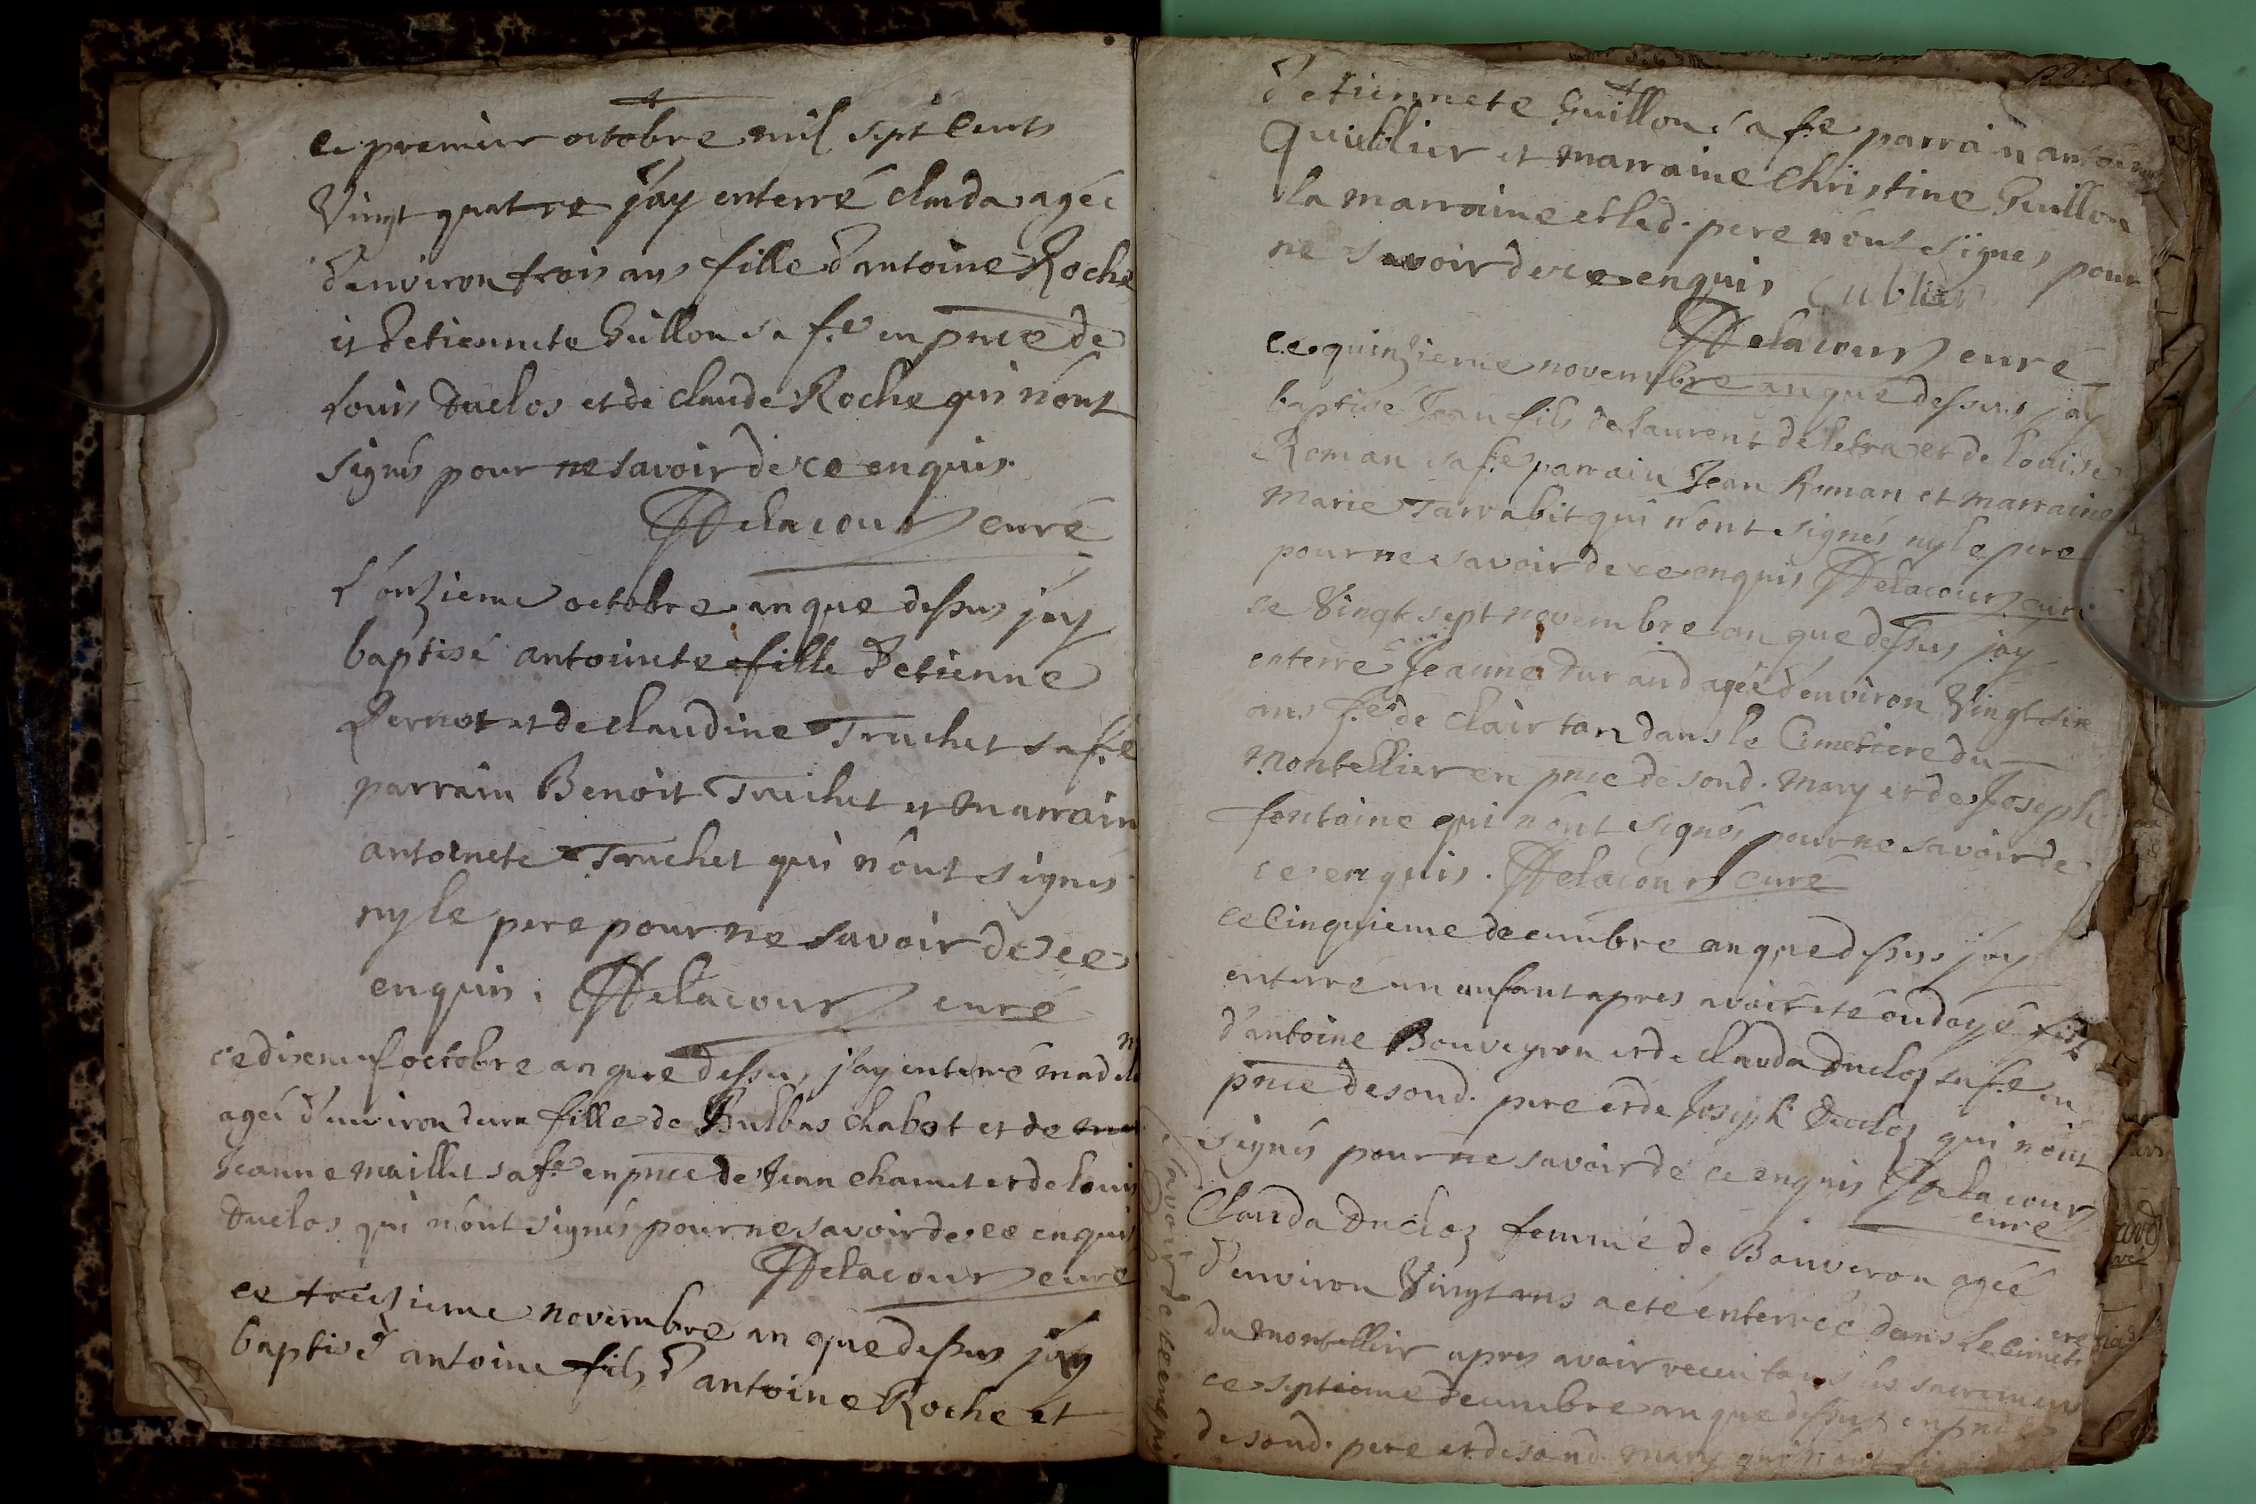 ce premier octobre mil sept cents
Vingt quatre j'ay enterré clauda agée
d'environ trois ans fille d'antoine Roche
et d'etiennete Guillon sa fe en pnce de
Louis Duclos et de claude Roche qui n'ont
signés pour ne savoir de ce enquis
Delacour curé
L'onzieme octobre an que dessus j'ay
baptisé antoinete fille d'etienne
Pernot et de claudine Truchet sa fe
parrain Benoit Truchet et marrain
antoinete Truchet qui n'ont signés
ny le pere pour ne savoir de ce
enquis. Delacour curé
ce dixneuf octobre an que dessus j'ay enterré madel
ageé d'environ deux fille de Bulbas chabot et de
Jeanne maillet sa fe en pnce de Jean chamet et de louis
Duclos qui n'ont signés pour ne savoir de ce enquis
Delacour curé
ce treizieme novembre an que dessus j'ay
baptisé antoine fils d'antoine Roche et
d'etiennete Guillon sa fe parrain antoine
Quiblier et marraine Christine Guillon
la marraine et led. pere n'ont signes pour
ne savoir de ce enquis Cublier
Delacour curé
ce quinzieme novembre an que dessus j'ay
baptisé Jean fils de laurent deletra et de louise
Roman sa fe parrain Jean Roman et marraine
Marie Tarrabit qui n'ont signés ny le pere
pour ne savoir de ce enquis Delacour curé
ce Vingt sept novembre an que dessus j'ay
enterré Jeanne durand ageé d'environ Vingt six
ans fe de clair tan dans le Cimetiere du
montellier en pnce de sond. mary et de Joseph
fontaine qui n'ont signés pour ne savoir de
ce enquis. Delacour curé
ce Cinquieme decembre an que dessus j'ay
enterré un enfant apres avoir eté ondoyé fils
d'antoine Bouveyron et de clauda Duclos sa fe en
pnce de sond. pere et de Joseph Duclos qui n'ont
signés pour ne savoir de ce enquis Delacour
curé
Clauda Duclos femme de Bouveron ageé
d'environ Vingt ans a eté enterreé dans le cimetiere
du montellier apres avoir receu tous les sacremens
ce septieme decembre an que dessus en pnce
de sond. pere et de sond. mary qui n'ont signé
savoir de ce enquis